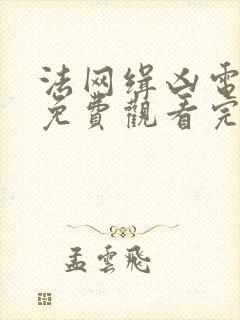 法网缉凶电
免費觀看完
孟雲飛